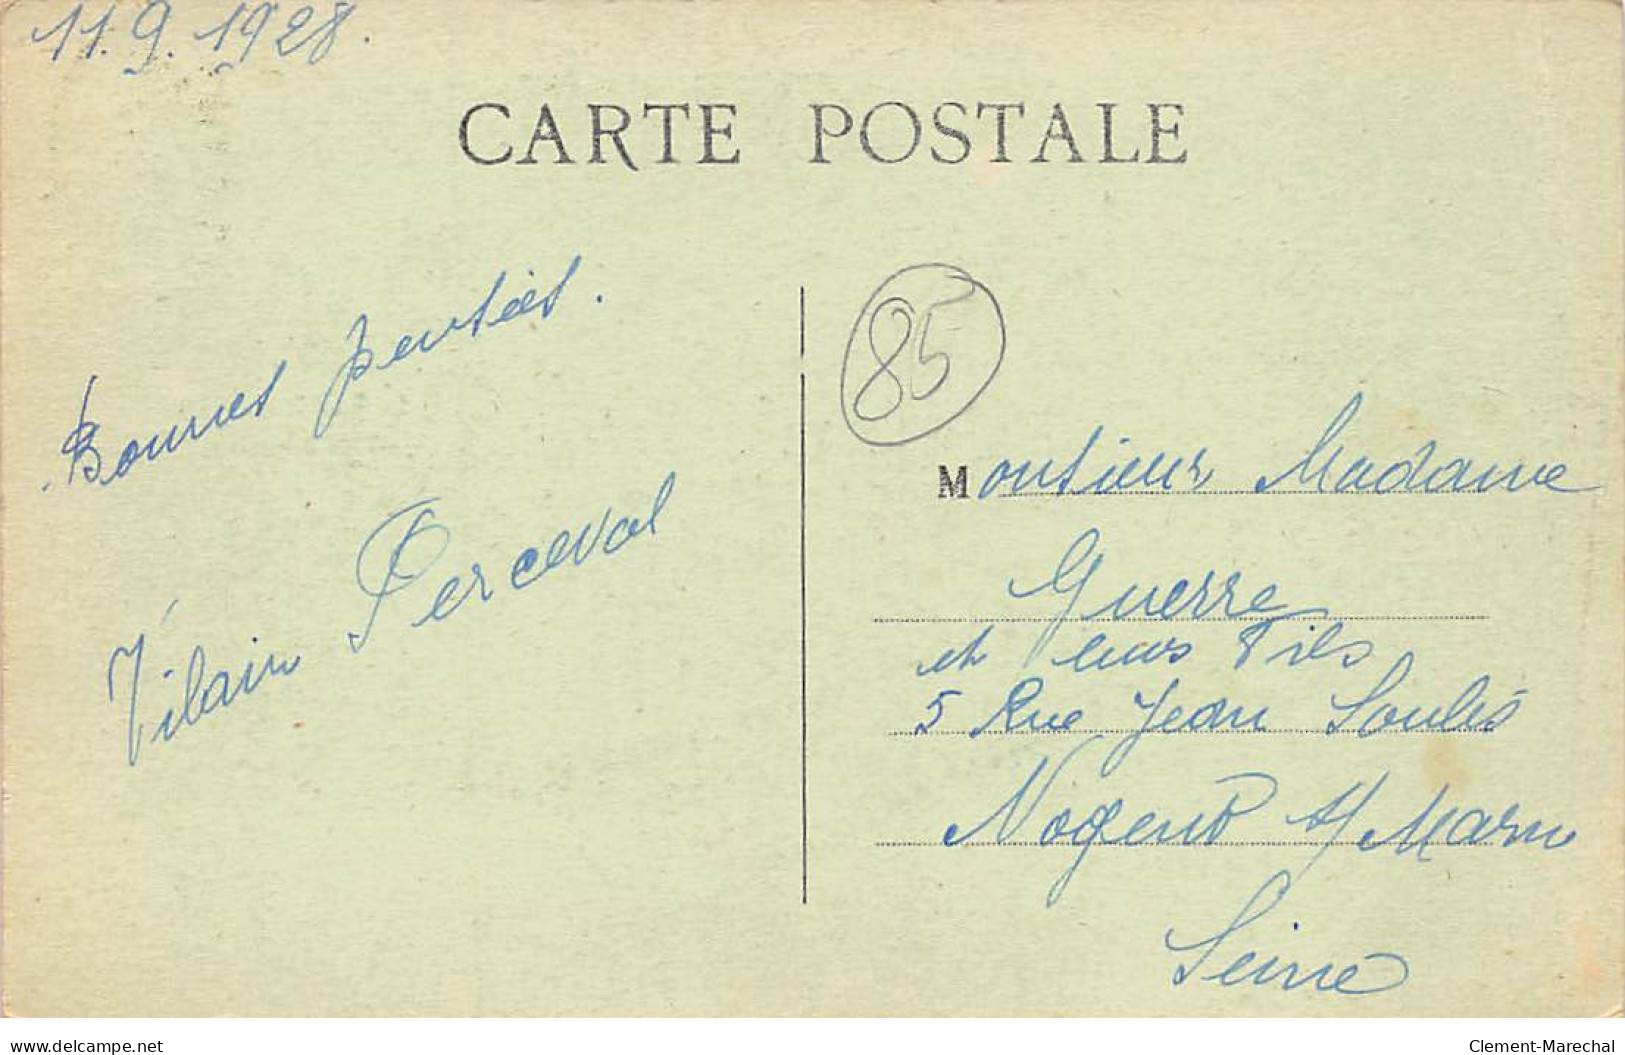 11.9.1928.
CARTE POSTALE
Bonnes pensées.
Vilain Perceval
85
Monsieur Madame
Guerre
et leurs Fils
5 Rue Jean Soulès
Nogent s/ Marne
Seine
www.delcampe.net
Clement-Marechal